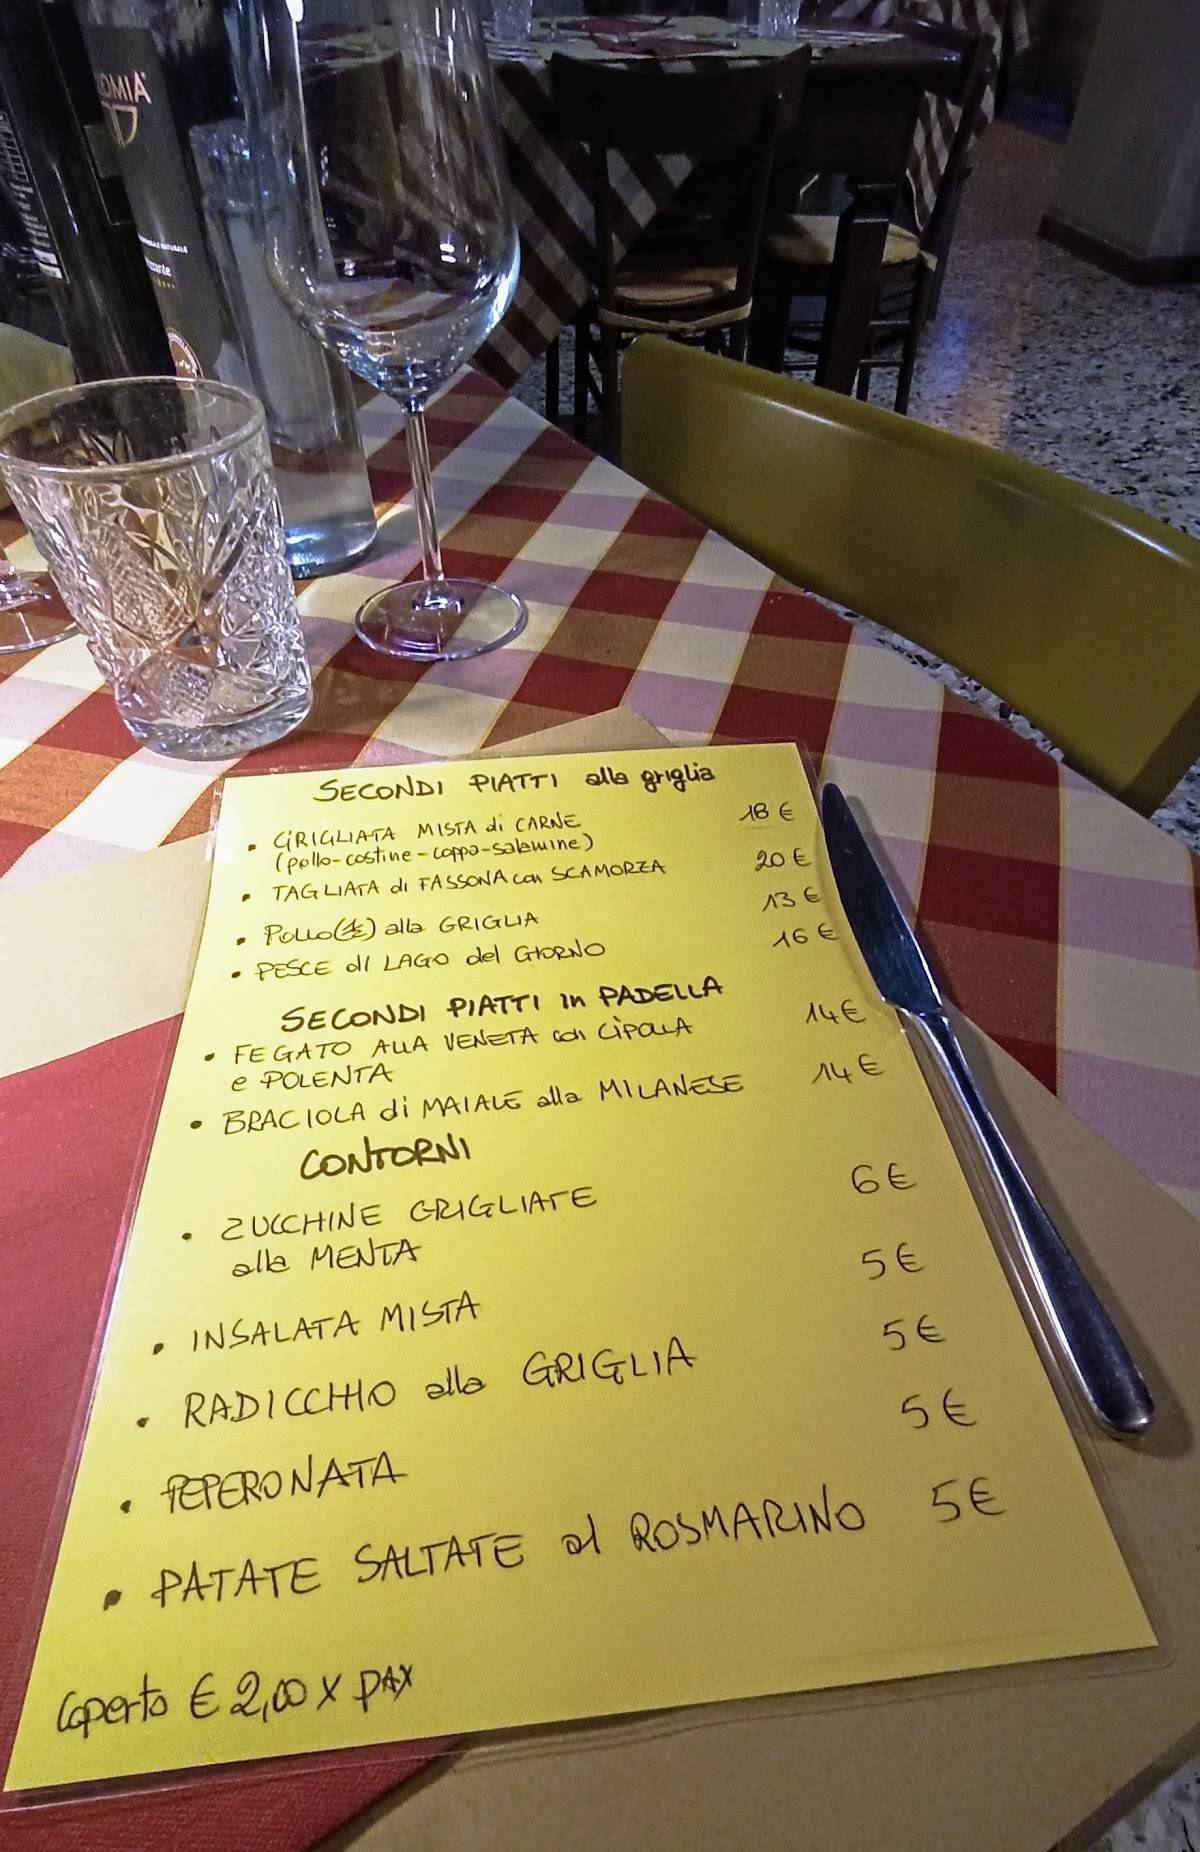 OMIA
SECONDI PIATTI alla griglia
• GRIGLIATA MISTA di CARNE 18 €
(pollo-costine-coppa-salamine)
• TAGLIATA di FASSONA con SCAMORZA 20 €
• POLLO(½) alla GRIGLIA 13 €
• PESCE di LAGO del GIORNO 16 €
SECONDI PIATTI in PADELLA
• FEGATO ALLA VENETA con CIPOLLA 14 €
e POLENTA
• BRACIOLA di MAIALE alla MILANESE 14 €
CONTORNI
• ZUCCHINE GRIGLIATE 6 €
alla MENTA
• INSALATA MISTA 5 €
• RADICCHIO alla GRIGLIA 5 €
• PEPERONATA 5 €
• PATATE SALTATE al ROSMARINO 5 €
Coperto € 2,00 x PAX